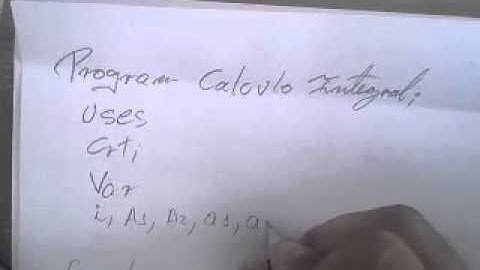 Program Calculo Integral;
Uses
Crt;
Var
i, A1, A2, a1, a